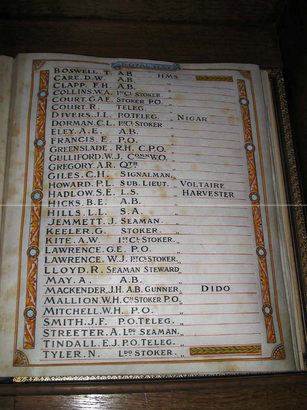 BOSWELL, T. A.B.
CARE, D.W. A.B. HMS
CLAPP, F.H. A.B. "
COLLINS, W.A. 1ST CL STOKER "
COURT, G.A.F. STOKER P.O. "
COURT, R. TELEG. "
DIVERS, J.L. P.O. TELEG. NIGAR
DORMAN, C.L. 1ST CL STOKER "
ELEY, A.E. A.B. "
FRANCIS, E. P.O. "
GREENSLADE, R.H. C.P.O. "
GULLIFORD, W.J. "
GREGORY, A.R. "
GILES, C.H. SIGNALMAN, "
HOWARD, P.L. SUB. LIEUT. VOLTAIRE
HADLOW, S.E. L.S. HARVESTER
HICKS, B.E. A.B. "
HILLS, L.L. S.A. "
JEMMETT, J. SEAMAN. "
KEELER, G. STOKER. "
KITE, A.W. 1ST CL STOKER. "
LAWRENCE, G.E. P.O. "
LAWRENCE, W.J. 1ST CL STOKER. "
LLOYD, R. SEAMAN STEWARD "
MAY, A. A.B. "
MACKENDER, J.H. A.B. GUNNER DIDO
MALLION, W.H. CH STOKER P.O. "
MITCHELL, W.H. P.O. "
SMITH, J.F. P.O. TELEG. "
STREETER, A. LDG SEAMAN. "
TINDALL, E.J. P.O. TELEG. "
TYLER, N. LDG STOKER. "